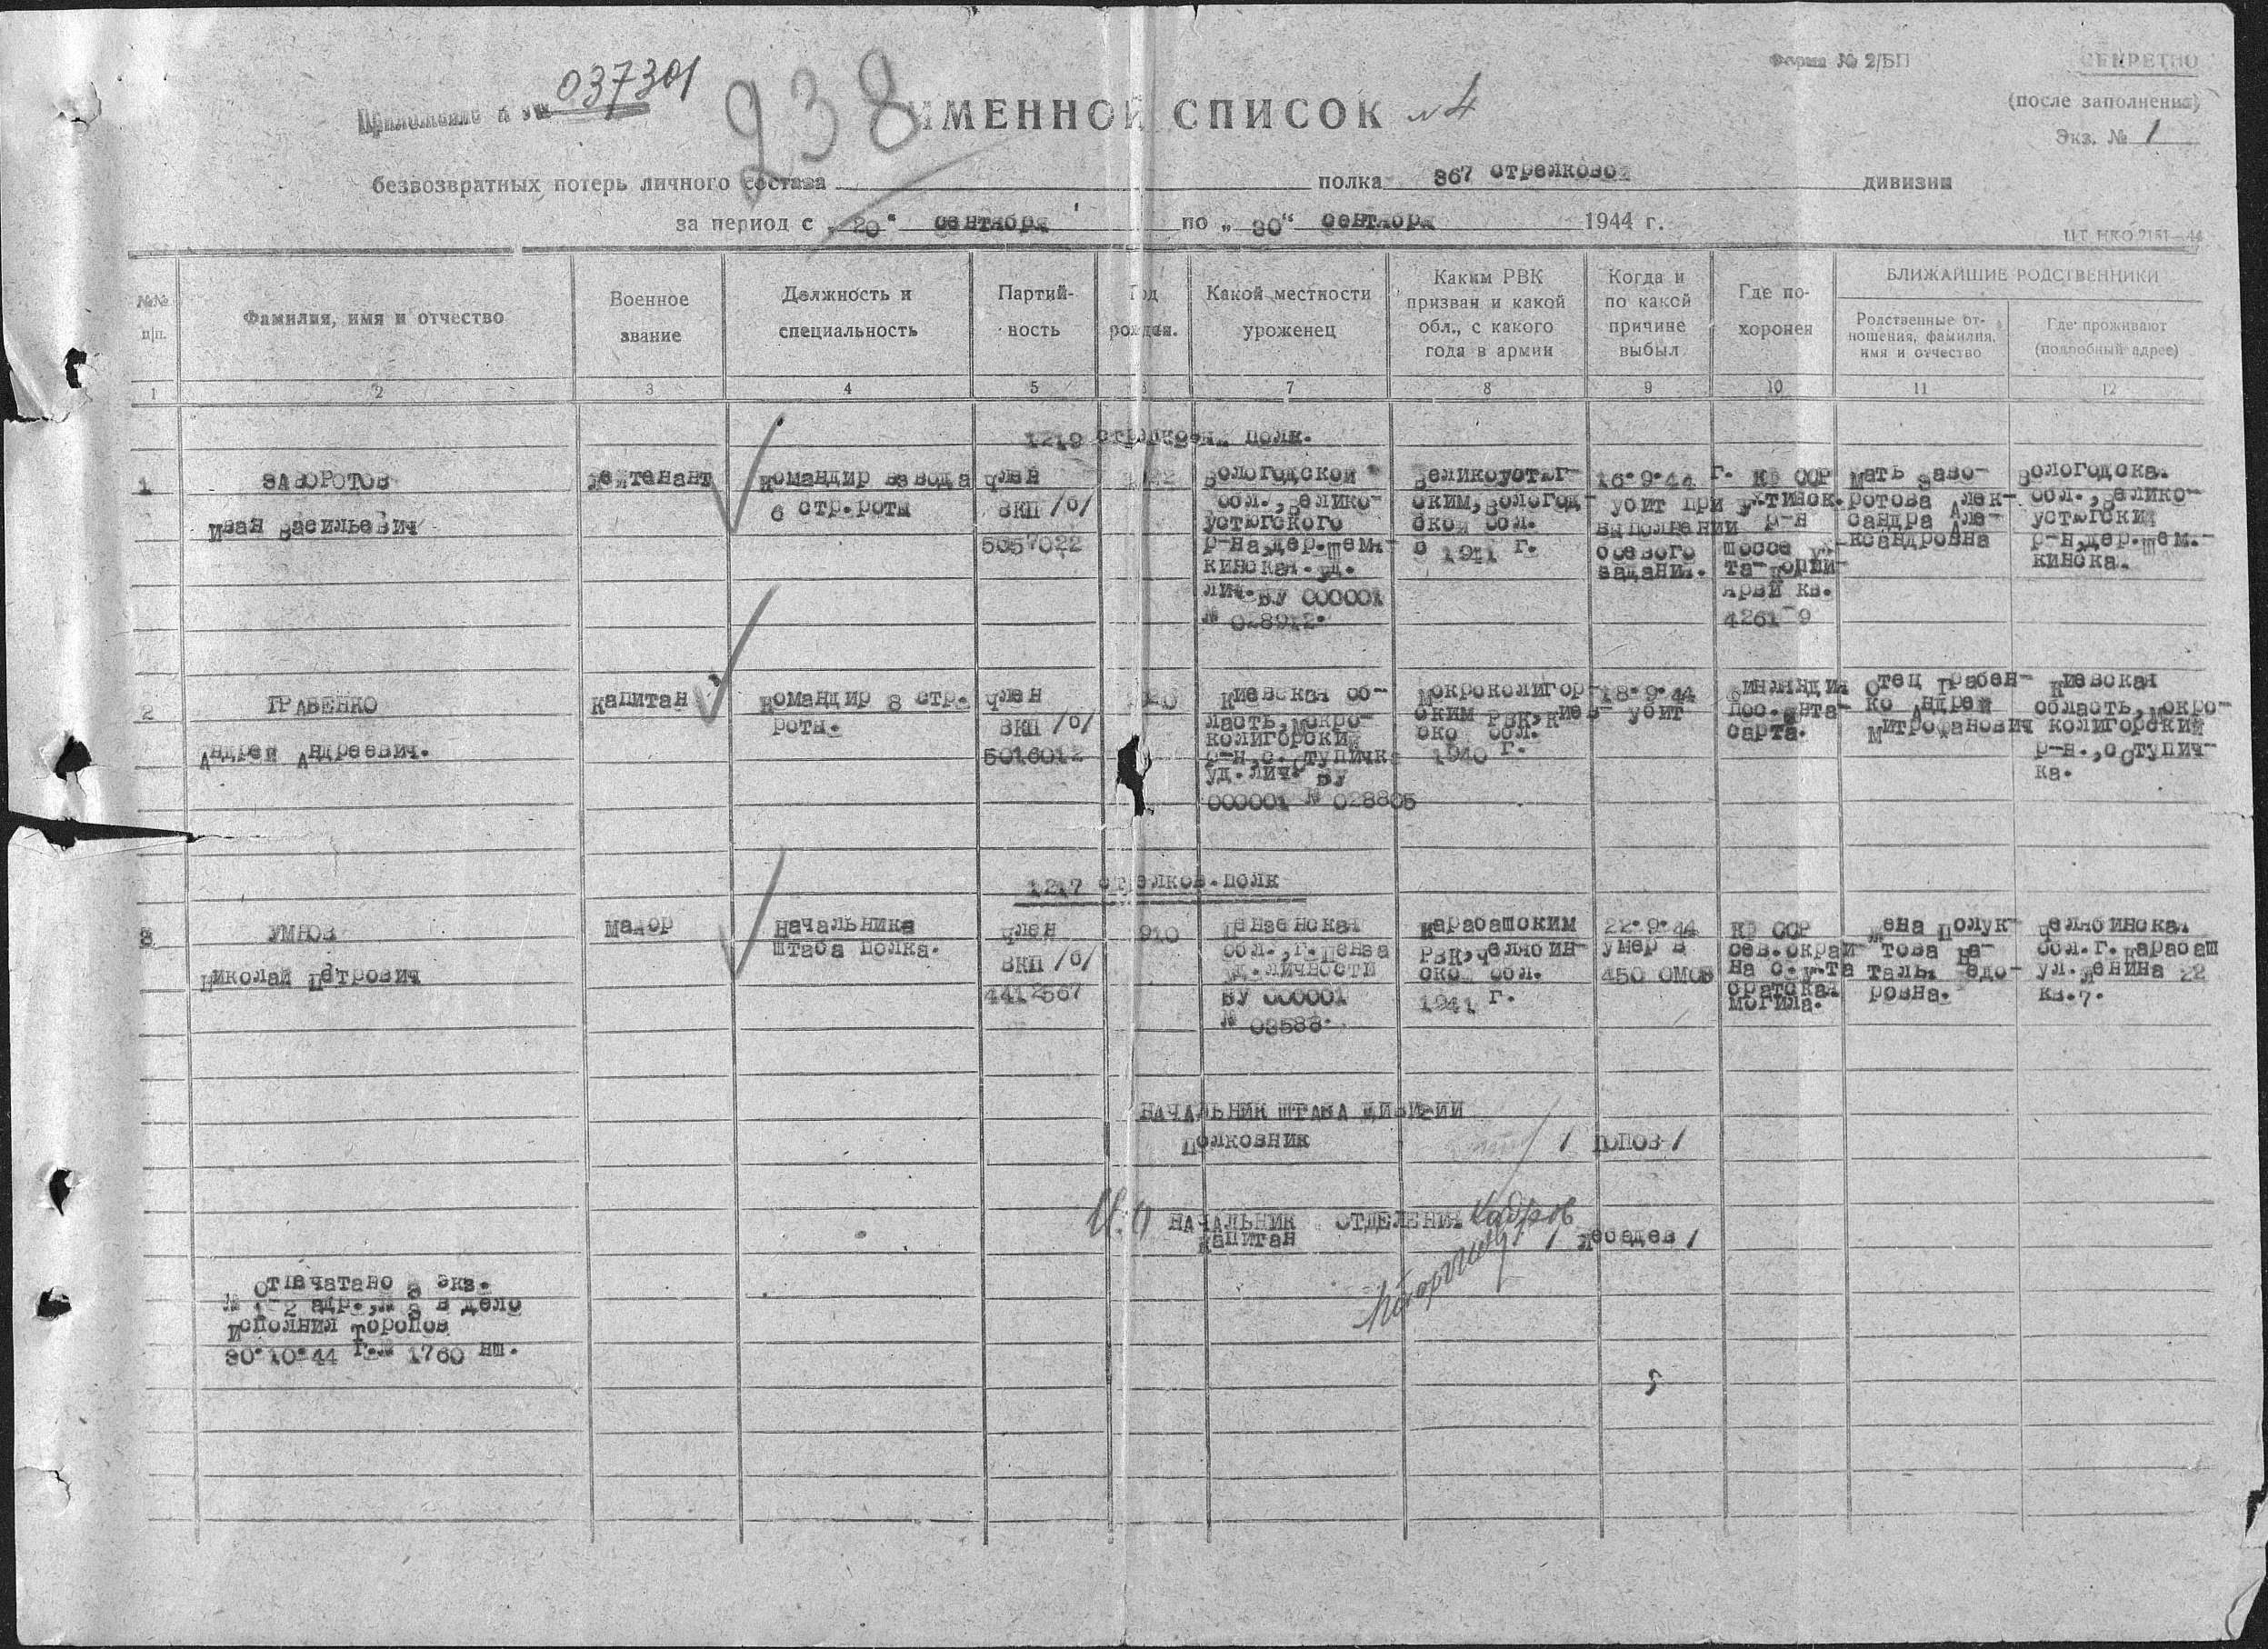 Форма № 2/БП
СЕКРЕТНО
(после заполнения)
Экз. № 1
Приложение к
037301
238
ИМЕННОЙ СПИСОК № 4
безвозвратных потерь личного состава полка 367 стрелковой дивизии
за период с „20“ сентября по „30“ сентября 1944 г.
№№ п/п.
Фамилия, имя и отчество
Военное звание
Должность и специальность
Партий-
ность
Год рожден.
Какой местности уроженец
Каким РВК
призван и какой
обл., с какого
года в армии
Когда и
по какой
причине
выбыл
Где по-
хоронен
БЛИЖАЙШИЕ РОДСТВЕННИКИ
Родственные от-
ношения, фамилия,
имя и отчество
Где проживают
(подробный адрес)
1 2 3 4 5 6 7 8 9 10 11 12
1219 стрелков. полк.
1
ЗАВОРОТОВ
Иван Васильевич
Лейтенант
Командир взвода
6 стр.роты
Член
ВКП /б/
5057022
Вологодской
обл., Велико-
устюгского
р-на,дер.Шем.-
кинская.уд.
лич.ВУ 000001
№ 028912.
Великоустюг-
ским,Вологод-
ской обл.
в 1941 г.
16.9.44 г.
убит при
выполнении
боевого
задания.
КФ ССР
Ухтинск.
р-н
шоссе Ух-
та-
кв.
4261-9
Мать Заво-
ротова Алек-
сандра Але-
ксандровна
Вологодска.
обл.,Велико-
устюгский
р-н,дер.Шем.-
кинска.
2
ГРАБЕНКО
Андрей Андреевич.
Капитан
Командир 8 стр.
роты.
Член
ВКП /б/
5016012
Киевская об-
ласть,Мокро-
колигорский
р-н,с.Ступичка
уд.лич. ВУ
000001 № 028805
Мокроколигор-
ским РВК,Киев-
ско обл.
1940 г.
18.9.44
убит
Финляндия
пос.Вита-
сарта.
Отец Грабен-
ко Андрей
Митрофанович
Киевская
область,Мокро-
колигорский
р-н.,с Ступич-
ка.
1217 стрелков.полк
3
УМНОВ
Николай Петрович
Майор
Начальника
штаба полка.
Член
ВКП /б/
4412567
910
Пензенская
обл.,г.Пенза
уд.личности
ВУ 000001
№ 03588.
Карабашским
РВК,Челябин-
ско обл.
1941 г.
22.9.44
умер в
450 ОМСБ
КФ ССР
сев.окраи-
на с.Ухта
братская
могила.
Жена Полук-
това На-
талья Федо-
ровна.
Челябинская
обл.г.Карабаш
ул.Ленина 22
кв.7.
НАЧАЛЬНИК ШТАБА ДИВИЗИИ
Полковник / ПОПОВ /
И.О НАЧАЛЬНИК ОТДЕЛЕНИЯ кадров
Капитан / Лебедев /
Отпечатано 3 экз.
№ 1-2 адр.,№ 3 в дело
Исполнил Торопов
30.10.44 г.№ 1760 нш.